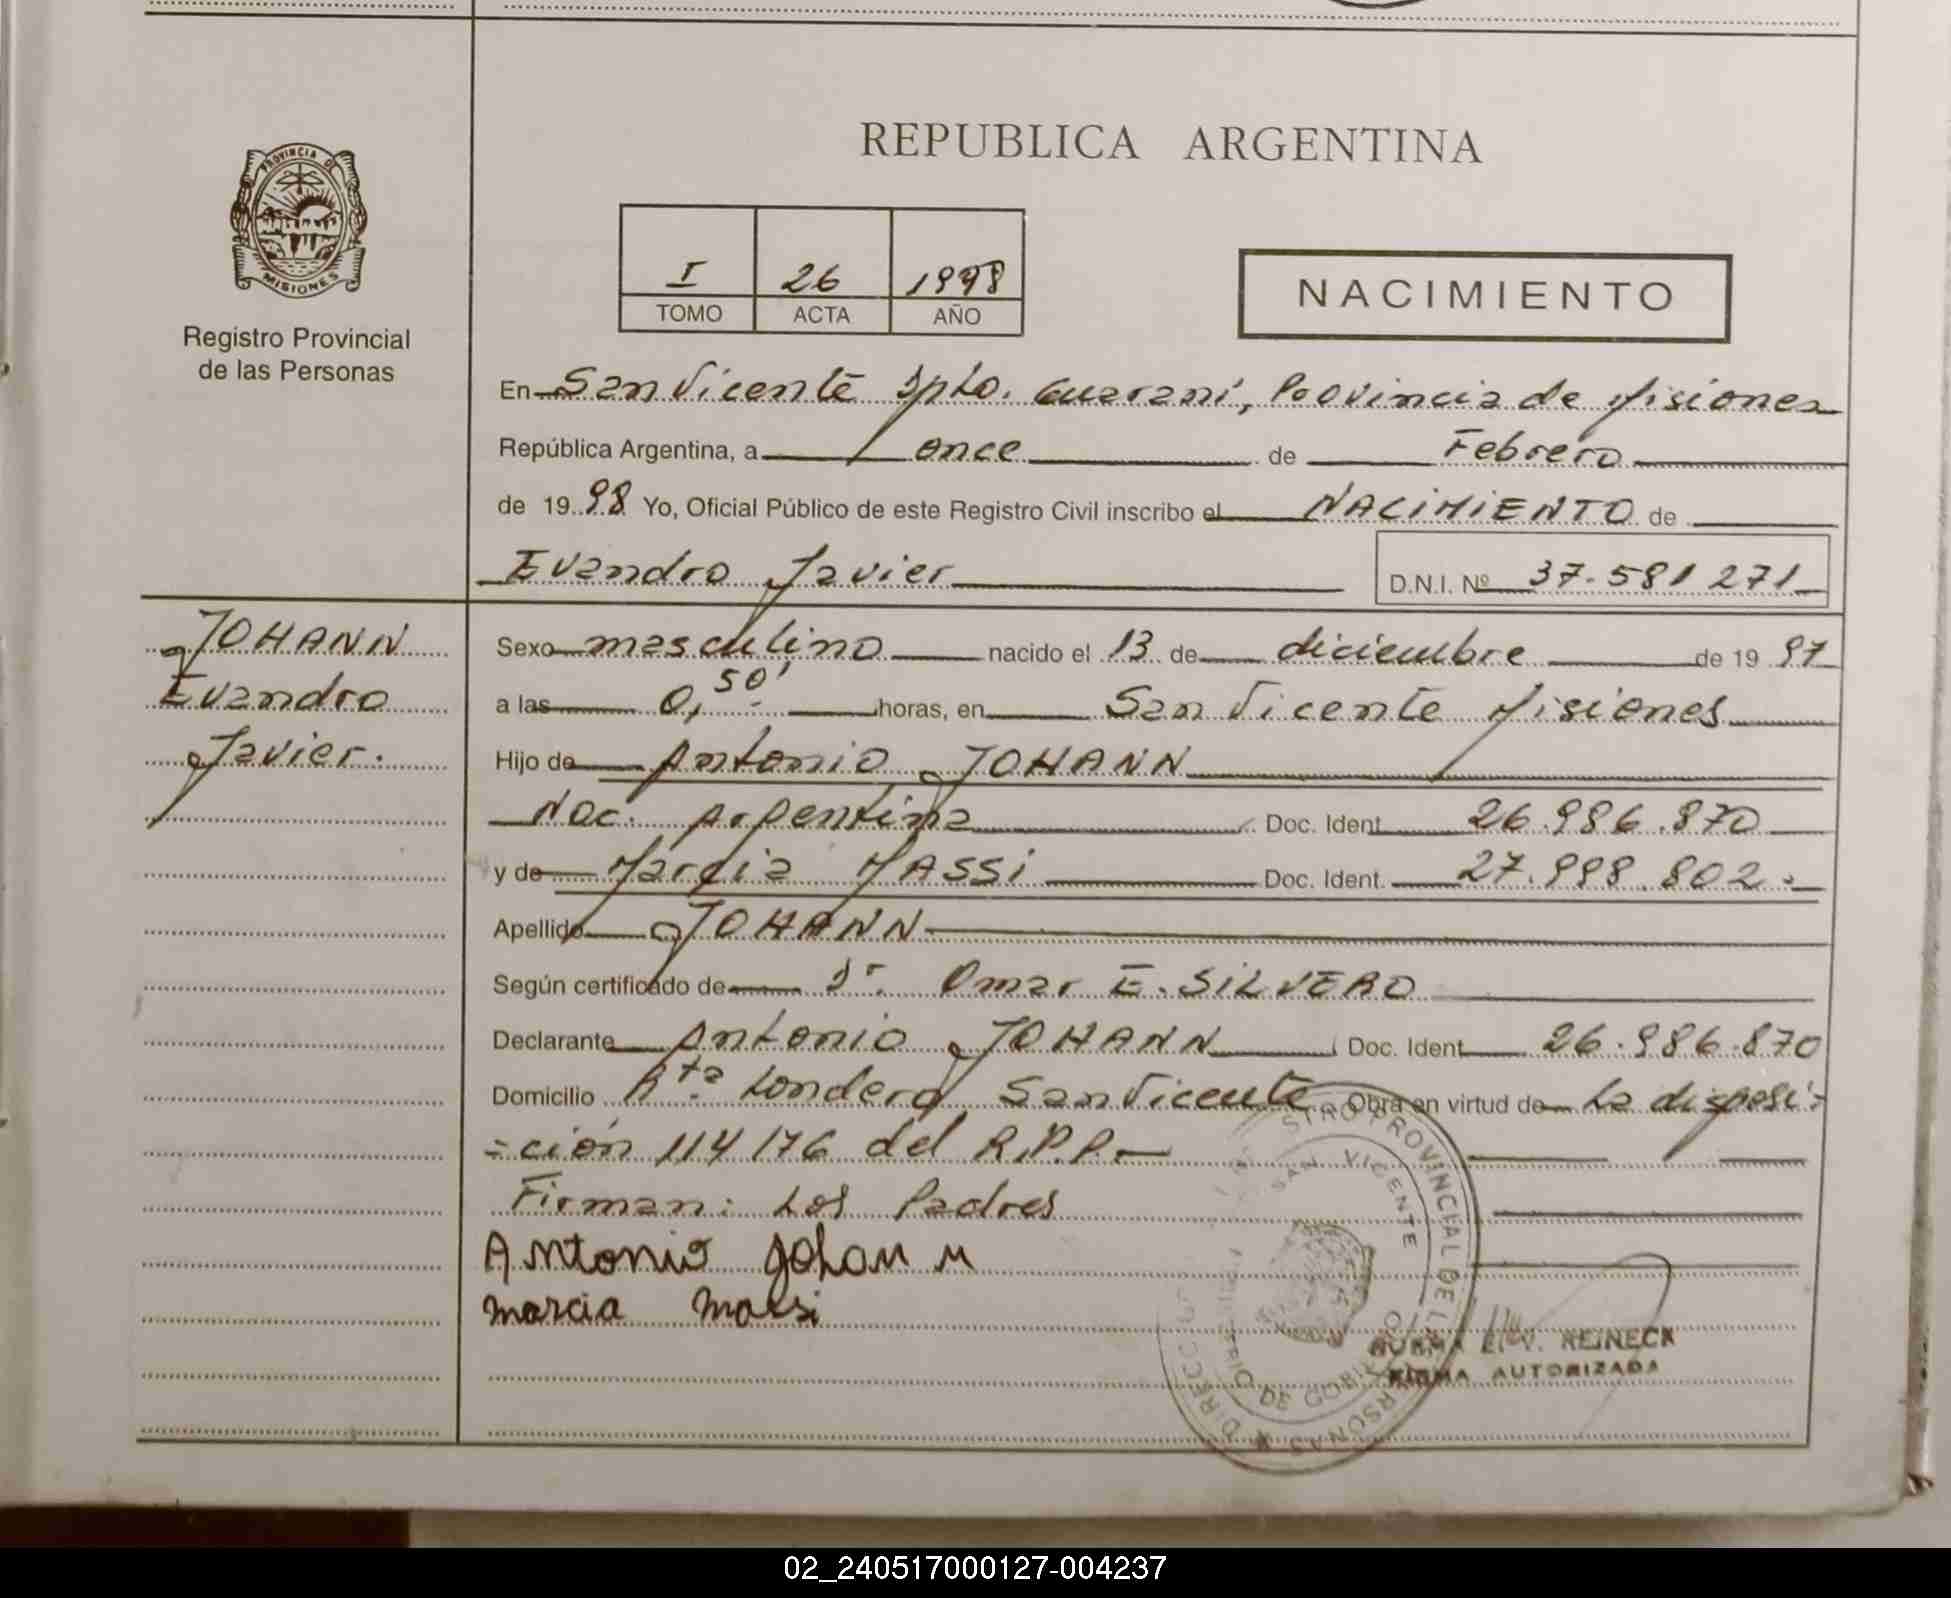 REPUBLICA ARGENTINA
PROVINCIA DE
MISIONES
Registro Provincial
de las Personas
I 26 1998
TOMO ACTA AÑO
NACIMIENTO
En San Vicente Dpto. Guaraní, Provincia de Misiones
República Argentina, a once de Febrero
de 1998 Yo, Oficial Público de este Registro Civil inscribo el NACIMIENTO de
Evandro Javier D.N.I. Nº 37.581271
JOHANN
Evandro
Javier.
Sexo masculino nacido el 13 de diciembre de 1997
a las 0,50' horas, en San Vicente Misiones
Hijo de Antonio JOHANN
Nac. Argentina Doc. Ident. 26.986.870
y de Marcia MASSI Doc. Ident. 27.998.802.-
Apellido JOHANN
Según certificado de Dr. Omar E. SILVERO
Declarante Antonio JOHANN Doc. Ident. 26.986.870
Domicilio Rta. Londero, San Vicente Obra en virtud de La disposi-
-ción 114/76 del R.P.P.-
Firman: Los Padres
Antonio Johann
Marcia Massi
SAN VICENTE
NORMA E. V. REINECK
FIRMA AUTORIZADA
02_240517000127-004237